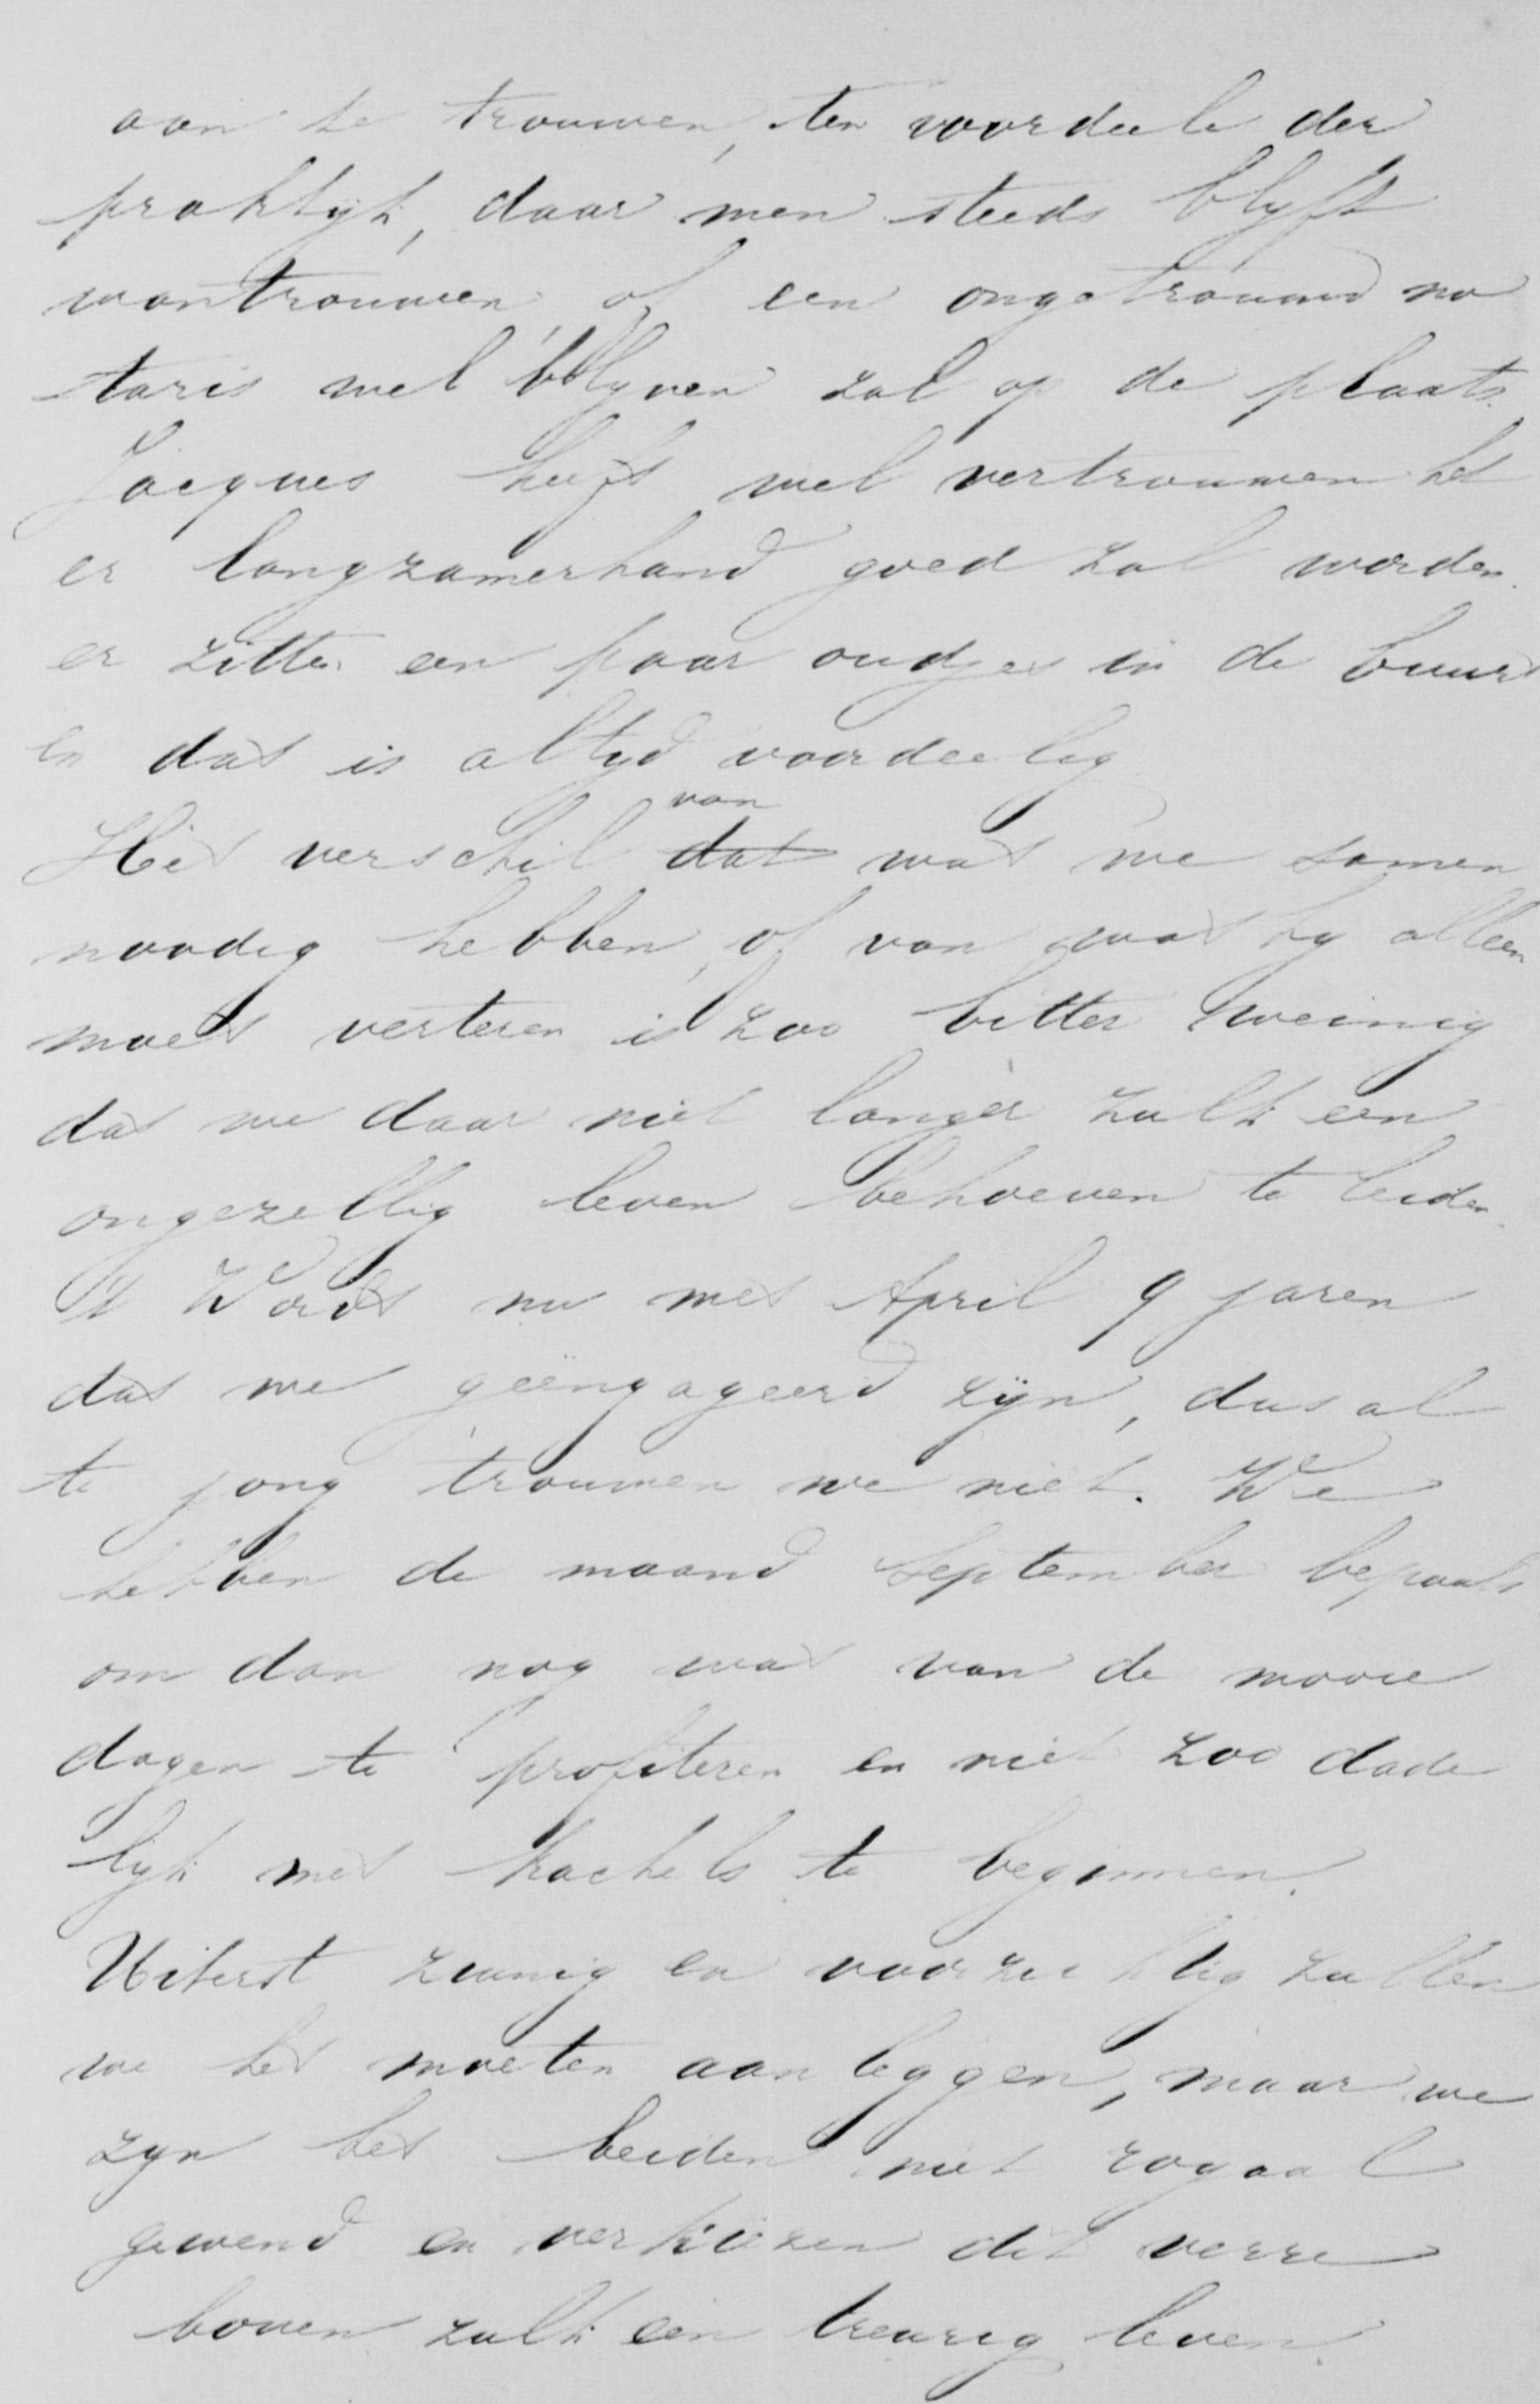 aan te trouwen, ten voordeele der
praktijk, daar men steeds blyft
wantrouwen of een ongetrouwd no
taris wel blyven zal op de plaats.
Jacques heeft wel vertrouwen het
er langzamerhand goed zal worden.
er zitten een paar oudjes in de buurt
en dat is altyd voordeelig
Het verschil van wat we samen
noodig hebben, of van wat hy alleen
moet verteren is zoo bitter weinig
dat we daar niet langer zulk een
ongezellig leven behoeven te leiden.
't Wordt nu met April 9 jaren
dat we geëngageerd zijn, dus al
te jong trouwen we niet. We
hebben de maand September bepaald
om dan nog wat van de mooie
dagen te profiteren en niet zoo dade
lijk met kachels te beginnen.
Uiterst zuinig en voorzichtig zullen
we het moeten aanleggen, maar we
zyn het beiden niet royaal
gewend en verkiezen dit verre
boven zulk een treurig leven.